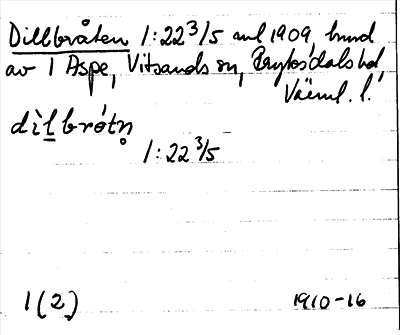 Dillbråten 1:22 3/5 enl 1909, hmd
av 1 Aspe, Vitsands sn, Fryksdals hd,
Värml. l.
dilbrótn̥
1:22 3/5
1(2)
1910-16